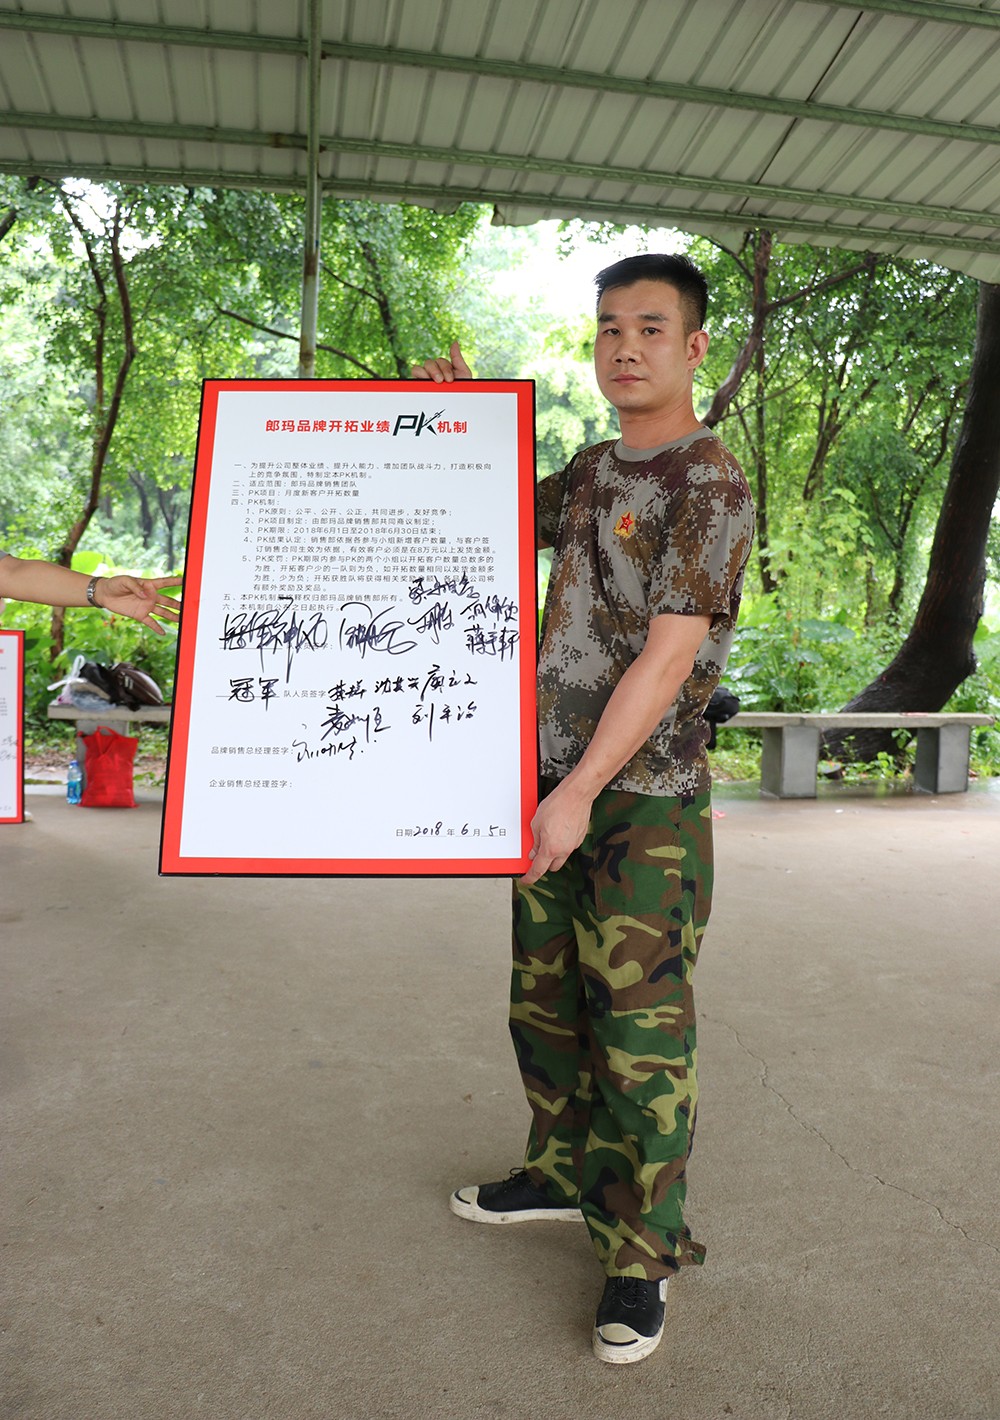 郎玛品牌开拓业绩PK机制
一、为提升公司整体业绩、提升人能力、增加团队战斗力，打造积极向
上的竞争氛围，特制定本PK机制。
二、适应范围：郎玛品牌销售团队
三、PK项目：月度新客户开拓数量
四、PK机制：
1、PK原则：公平、公开、公正，共同进步，友好竞争；
2、PK项目制定：由郎玛品牌销售部共同商议制定；
3、PK期限：2018年6月1日至2018年6月30日结束；
4、PK结果认定：销售部依据各参与小组新增客户数量，与客户签
订销售合同生效为依据，有效客户必须是在8万元以上发货金额。
5、PK奖罚：PK期限内参与PK的两个小组以开拓客户数量总数多的
为胜，开拓客户少的一队则为负，如开拓数量相同以发货金额多
为胜，少为负；开拓获胜队将获得相关奖励
公司将
有额外奖励及奖品。
五、本PK机制 释权归郎玛品牌销售部所有。
六、本机制自公布之日起执行。
冠军 队人员签字
品牌销售总经理签字：
企业销售总经理签字：
日期2018年6月5日